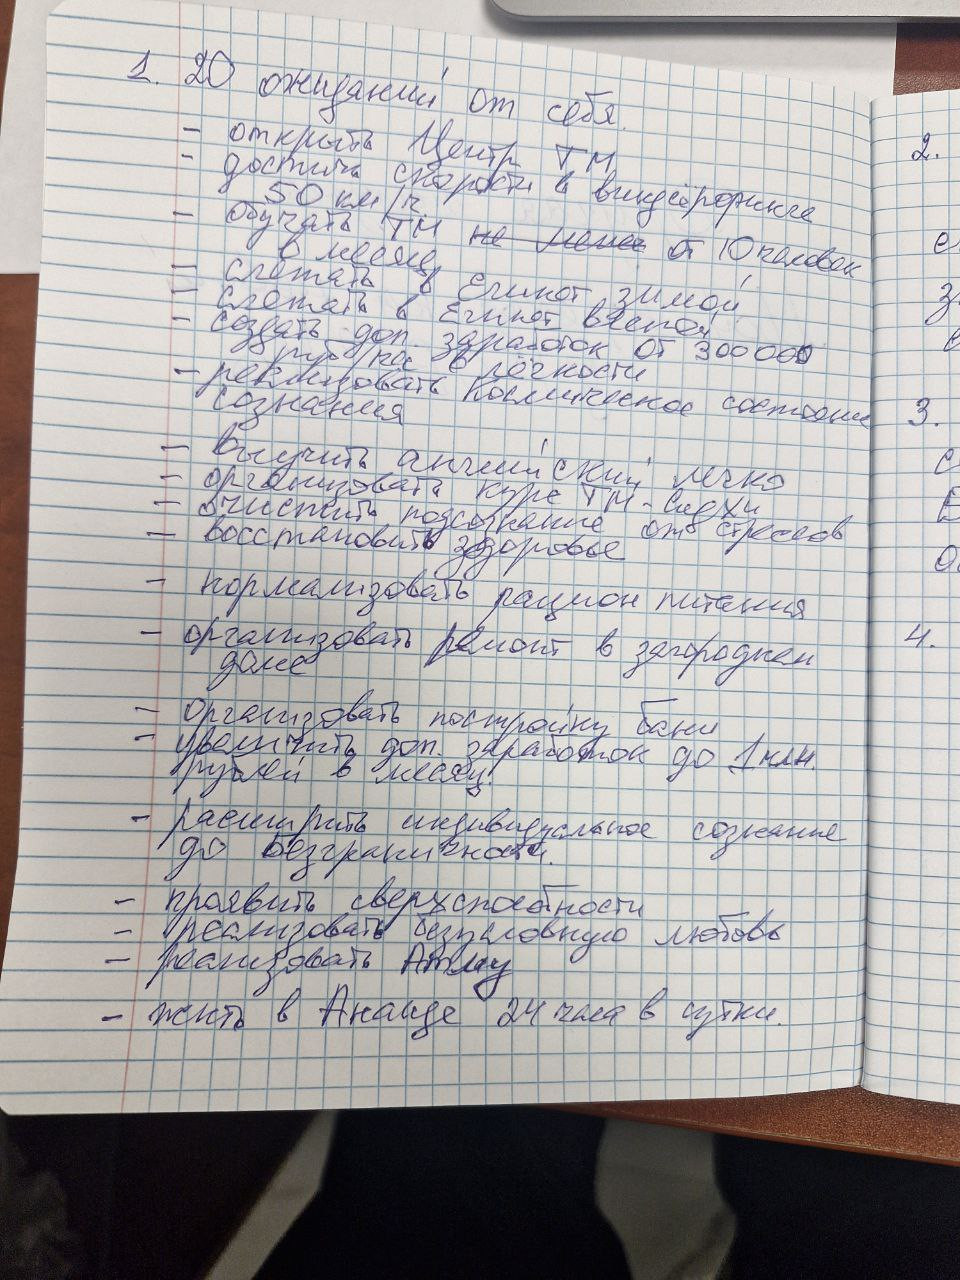 1. 20 ожиданий от себя.
- открыть Центр ТМ
- достичь скорости в виндсёрфинге
50 км/ч
- обучать ТМ не менее от 10 человек
в месяц
- слетать в Египет зимой
- слетать в Египет весной
- создать доп. заработок от 300000
руб на лёгкости
- реализовать Космическое состояние
сознания
- выучить английский легко
- организовать курс ТМ-Сидхи
- очистить подсознание от стрессов
- восстановить здоровье
- нормализовать рацион питания
- организовать ремонт в загородном
доме
- организовать постройку бани
- увеличить доп. заработок до 1 млн.
рублей в месяц
- расширить индивидуальное сознание
до безграничности.
- проявить сверхспособности
- реализовать безусловную любовь
- реализовать Атму
- жить в Ананде 24 часа в сутки.
2.
3.
4.